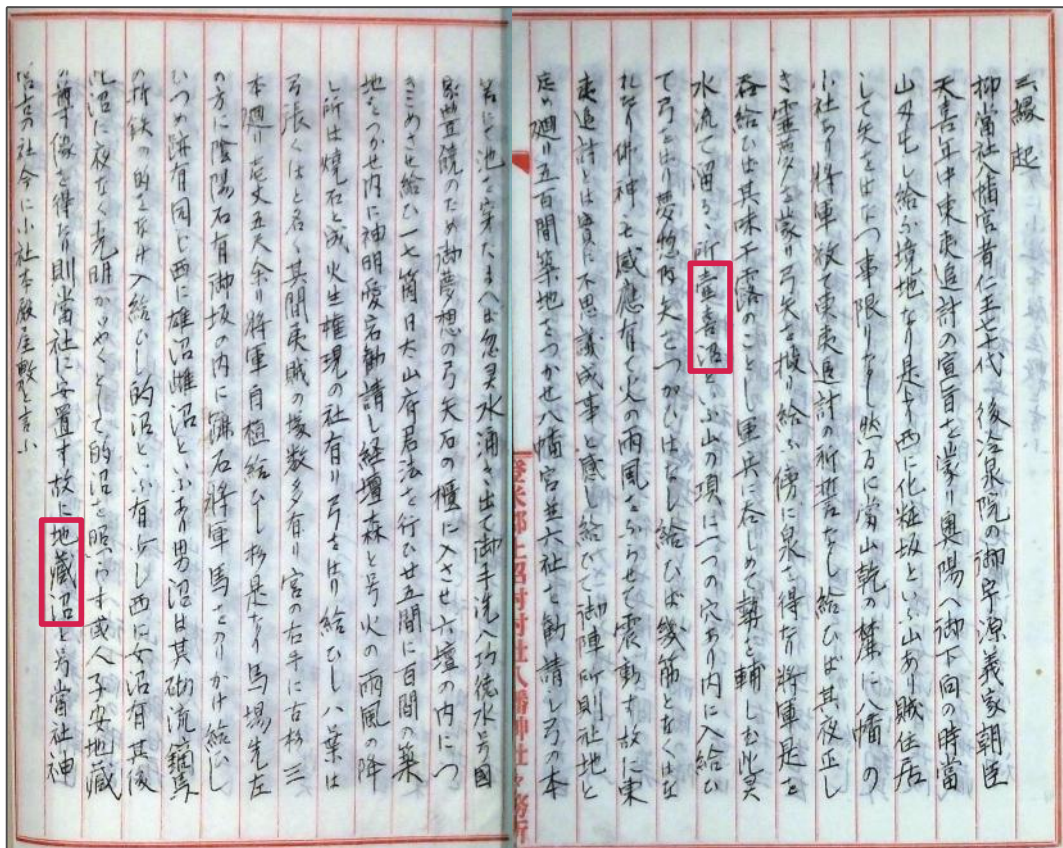 云縁起
抑當社八幡宮者仁王七十代　後冷泉院の御宇源義家朝臣
天喜年中東夷追討の宣旨を蒙り奥陽へ御下向の時當
山 もし給ふ境地なり是より西に化粧坂といふ山あり賊住居
して矢を出なつ事限りなし然るに當山乾の麓に八幡　の
小社あり將軍敬て東夷追討の祈誓なし給ひば其夜正し
き霊夢を蒙り弓矢を授り給ふ傍に泉を得なり將軍是を
呑給ひ出其味干露のことし軍兵に呑しめて勢を輔し
水流て溜る所壹喜沼といふ山の頂に一つの穴あり内に入給ひ
て弓をはり夢想乃矢をつがひはなし給ひば幾筋となくはな
れなり佛神も感應有て火の雨風をふらせて震動す故に東
夷追討とは實に不思議成事と感し給ひて御陣所則社地と
定め廻り五百間築地をつかせ八幡宮並六社を勧請し弓の本
登米郡上沼村村社八幡神社々務所
池を穿たまへは忽灵水涌き出て御手洗八功徳水と号国
家豊饒のため御夢想の弓矢石の櫃に入させ六壇の内につ
きこめさせ給ひ一七箇日大山府君法を行ひ廿五間に百間の築
地をつかせ内に神明愛宕勧請し経壇森と号火の雨風の降
し所は焼石と成火生権現の社有り弓をはり給ひし八葉は
弓張くはと名く其間東賊の塚数多有り宮の右手に古杉三
本廻り壱丈五尺余り將軍自植給ひし杉是なり馬場先左
の方に陰陽石有御坂の内に蹄石將軍馬をのりかけ給ひし
ひつめ跡有同し西に雄沼雌沼といふあり男沼は其砌流鏑馬
の所鉄の的をなけ入給ひし的沼といふ有少し西に女沼有其後
此沼に夜なく光明かゝやくとして的沼を照らす或人子安地藏
の尊像を得なり則當社に安置す故に地藏沼と号當社神
社今に小社本殿屋敷と言ふ